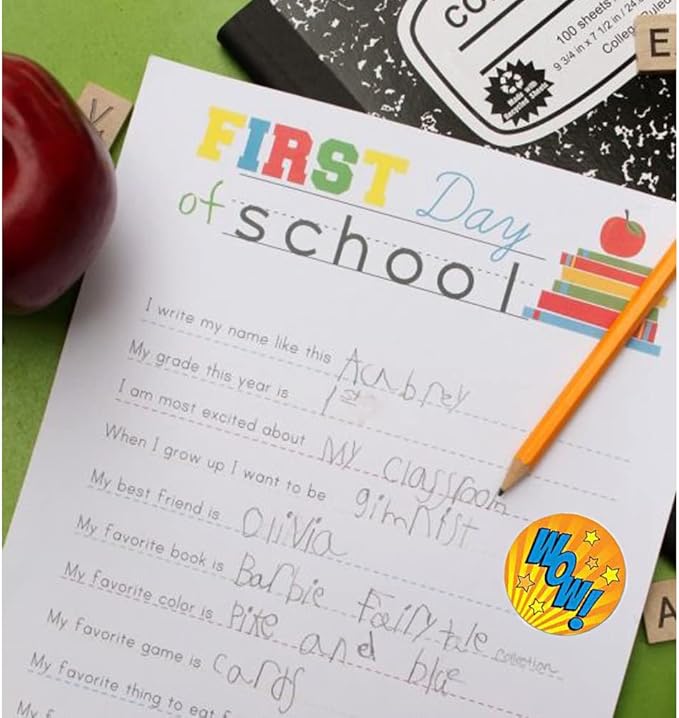 CO
100 sheets
9 3/4 in x 7 1/2 in / 24.
College Ruled
Made with
Recycled Sheets
E
Y
FIRST Day
of school
I write my name like this Aubrey
My grade this year is 1st
I am most excited about My classroom
When I grow up I want to be gimnist
My best friend is Olivia
My favorite book is Barbie Fairytale collection
My favorite color is Pike and blue
My favorite game is cards
My favorite thing to eat f
My f
WOW!
A